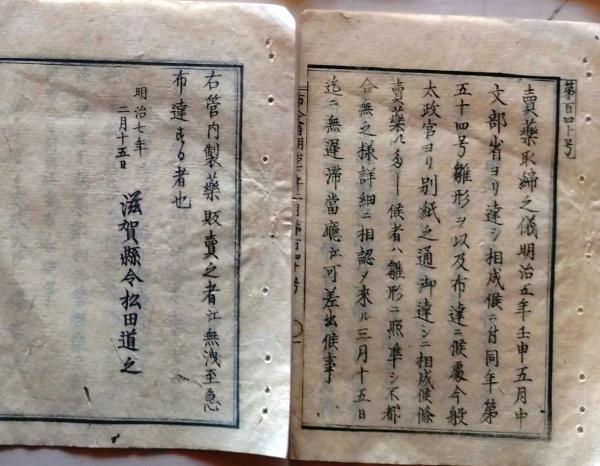 第百四十号
賣藥取締之儀明治五年壬申五月中
文部省ヨリ達シ相成候ニ付同年第
五十四号雛形ヲ以及布達ニ候處今般
太政官ヨリ別紙之通御達シニ相成候條
賣藥
候者ハ雛形ニ照準シ不都
合無之様詳細ニ相認メ来ル三月十五日
迄ニ無遅滞當廳江可差出候事
右管内製藥販賣之者江無洩至急
布達する者也
明治七年
二月十五日
滋賀縣令松田道之